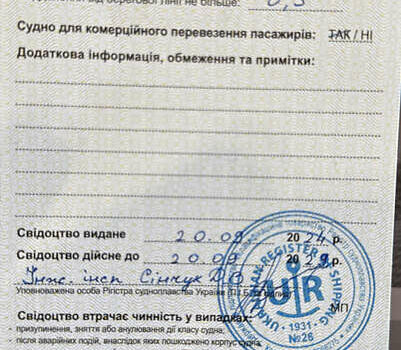 від берегової лінії не більше: 0,5
Судно для комерційного перевезення пасажирів: ТАК / НІ
Додаткова інформація, обмеження та примітки:
Свідоцтво видане 20.09 2024 р.
Свідоцтво дійсне до 20.09 2029 р.
Інж. інсп Сінчук
Уповноважена особа Регістра судноплавства України
МП
UKRAINIAN REGISTER SHIPPING
UR
- 1931 -
№26
Свідоцтво втрачає чинність у випадках:
- призупинення, зняття або анулювання дії класу судна;
- після аварійних подій, внаслідок яких пошкоджено корпус судна,